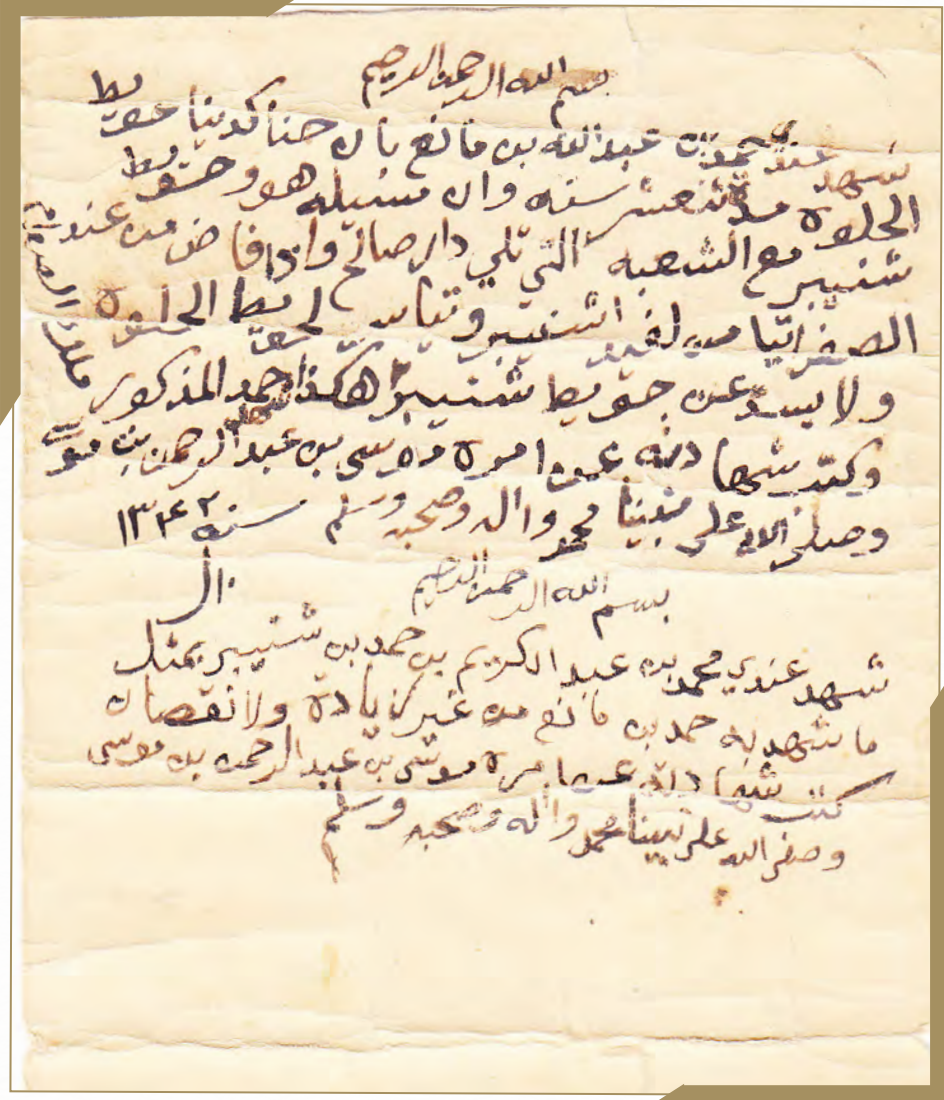 بسم الله الرحمن الرحيم
شهد عندي حمد بن عبدالله بن مانع بان حنا كدينا حويط
الحلوه مدة ثنعشر سنه وان مسيله هو وحويط
شنيبر مع الشعبه التي تلي دار صالح واذا فاض من عند
الصفر
ولا يسد عن حويط شنيبر هكذا شهد حمد المذكور
وكتب شهادته عن امره موسى بن عبدالرحمن بن موسى
وصلى الله على نبينا محمد واله وصحبه وسلم سنه ١٣٤٢
بسم الله الرحمن الرحيم
شهد عندي محمد بن عبد الكريم بن حمد بن شنيبر بمثل
ما شهد به حمد بن مانع من غير زيادة ولا نقصان
كتب شهادته عن امره موسى بن عبد الرحمن بن موسى
وصلى الله على نبينا محمد واله وصحبه وسلم